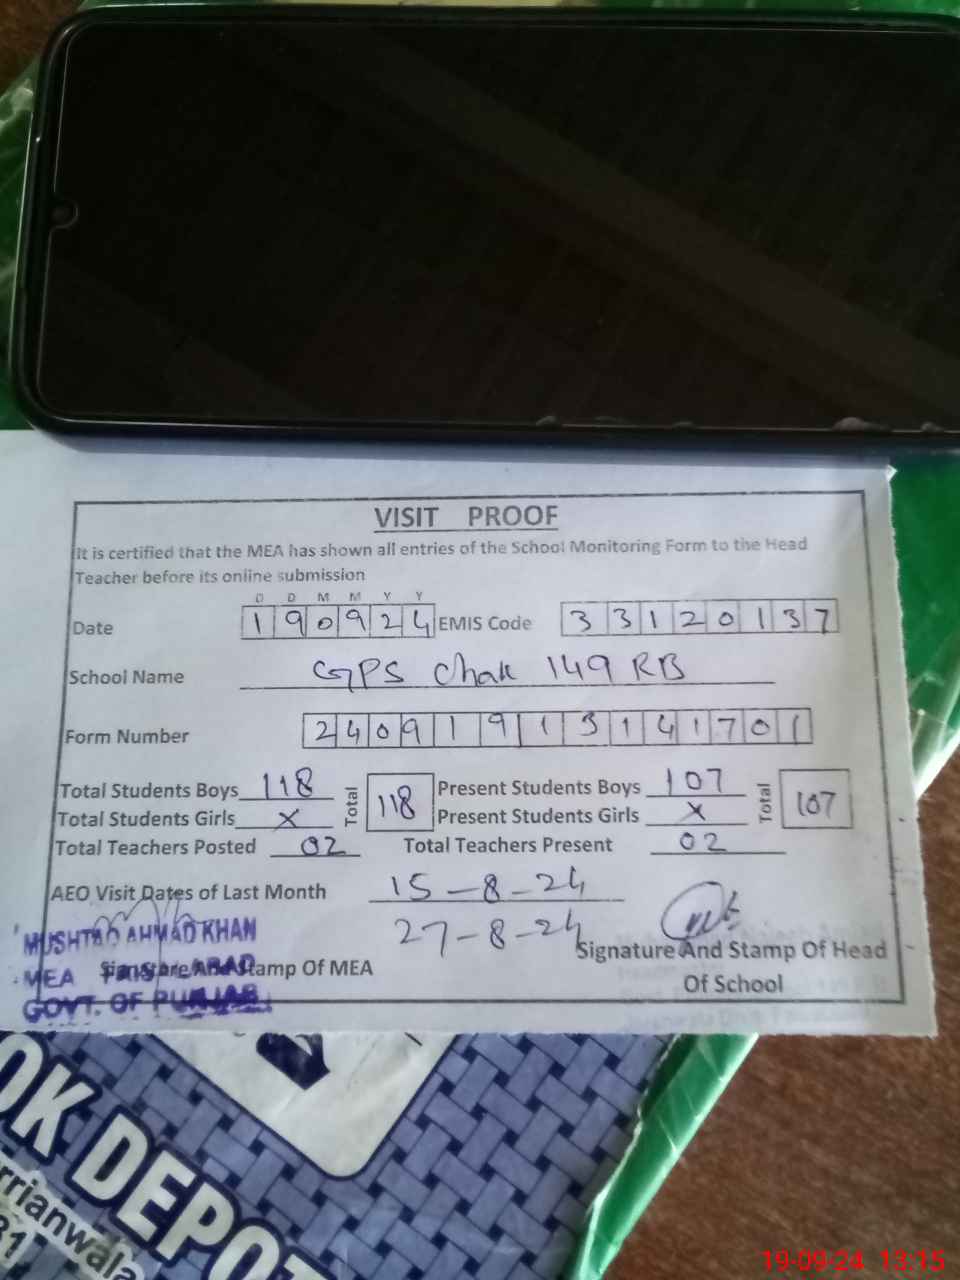 VISIT PROOF
It is certified that the MEA has shown all entries of the School Monitoring Form to the Head
Teacher before its online submission
D D M M Y Y
Date 190924 EMIS Code 33120137
School Name GPS Chak 149 RB
Form Number 24091913141701
Total Students Boys 118 Total 118 Present Students Boys 107 Total 107
Total Students Girls X Present Students Girls X
Total Teachers Posted 02 Total Teachers Present 02
AEO Visit Dates of Last Month 15-8-24
27-8-24
MUSHTAQ AHMAD KHAN
MEA FAISALABAD
GOVT. OF PUNJAB
Signature And Stamp Of MEA
Signature And Stamp Of Head
Of School
OK DEPOT
rrianwala
31
19-09-24 13:15